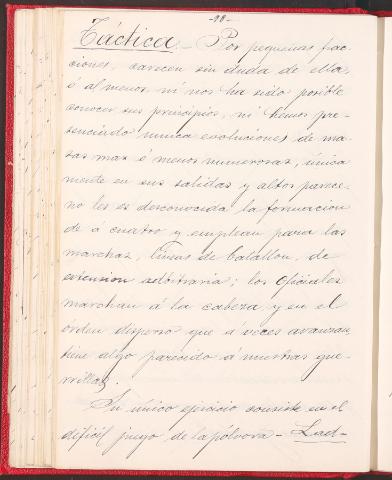 -98-
Táctica.- Por pequeñas frac-
ciones, carecen sin duda de ella,
ó al menos, ni nos ha sido posible
conocer sus principios, ni hemos pre-
senciado nunca evoluciones de ma-
sas mas ó menos numerosas, única
mente en sus salidas y altos parece
no les es desconocida la formacion
de á cuatro y emplean para las
marchas, líneas de batallon, de
extension arbitraria; los Oficiales
marchan á la cabeza y en el
órden disperso que á veces avanzan
tiene algo parecido á nuestras gue-
rrillas.
Su único ejercicio consiste en el
difícil juego de la pólvora - Lad-